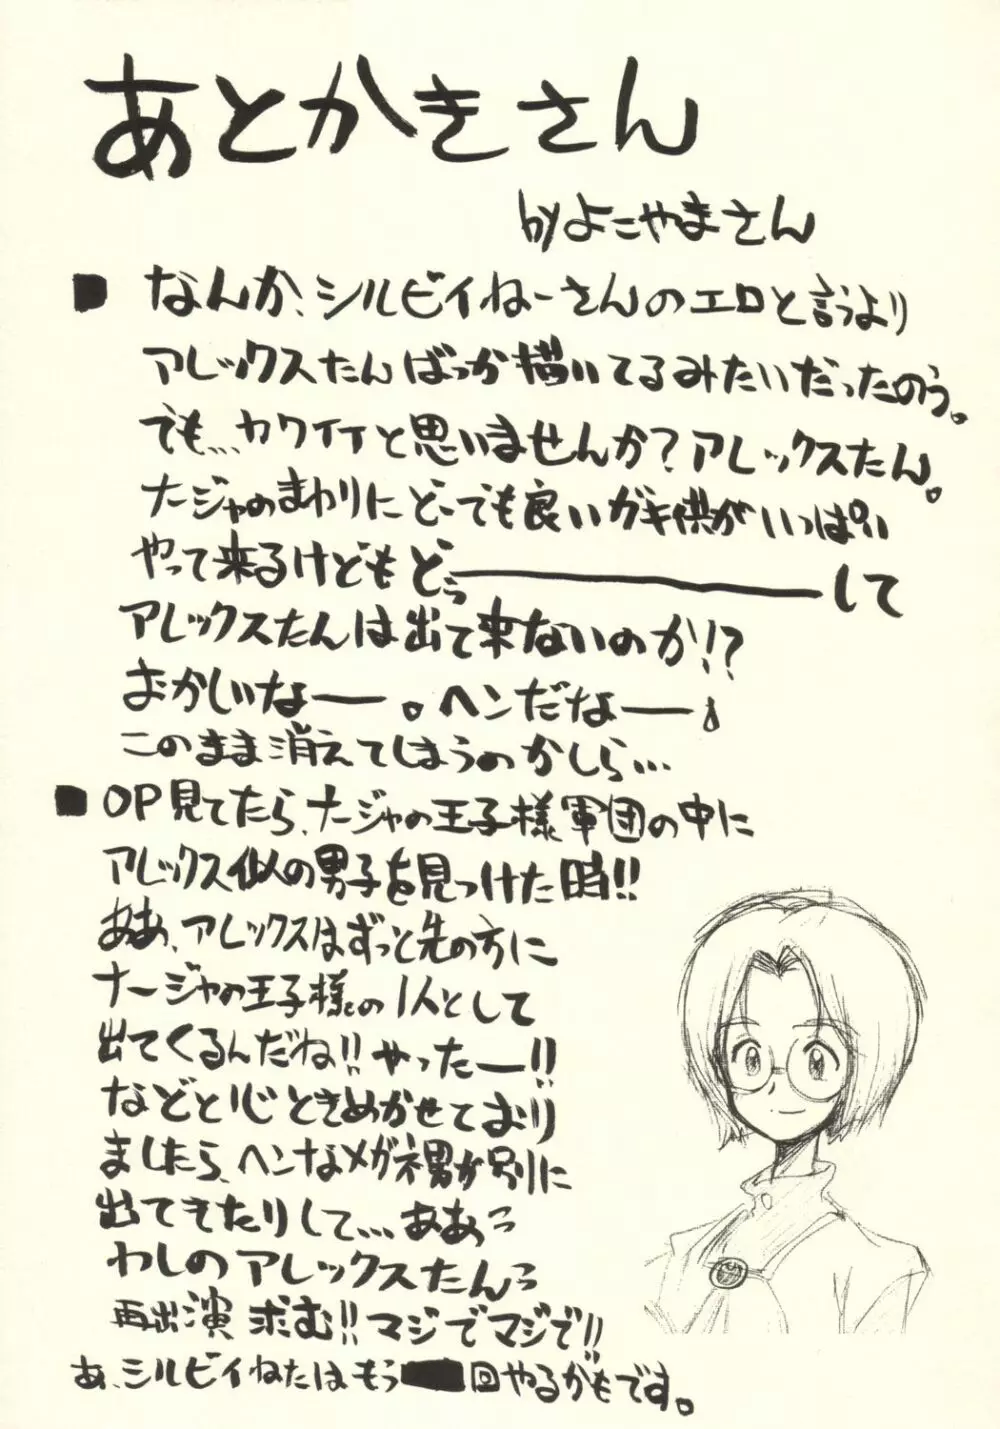 あとかきさん
byよこやまさん
■ なんか、シルビィねーさんのエロと言うより
アレックスたんばっか描いてるみたいだったのう。
でも…カワイイと思いませんか?アレックスたん。
ナージャのまわりにどーでも良いガキ供がいっぱい
やって来るけどもどぅ――――して
アレックスたんは出て来ないのか!?
おかしいなー。ヘンだなー。
このまま消えてしまうのかしら…
■ OP見てたら、ナージャの王子様軍団の中に
アレックス似の男子を見つけた時!!
ああ、アレックスはずっと先の方に
ナージャの王子様の1人として
出てくるんだね!!やったー!!
などと心ときめかせており
ましたら、ヘンなメガネ男が別に
出てきたりして…ああっ
わしのアレックスたんっ
再出演求む!!マジでマジで!!
あ、シルビィねたはもう 回やるかもです。